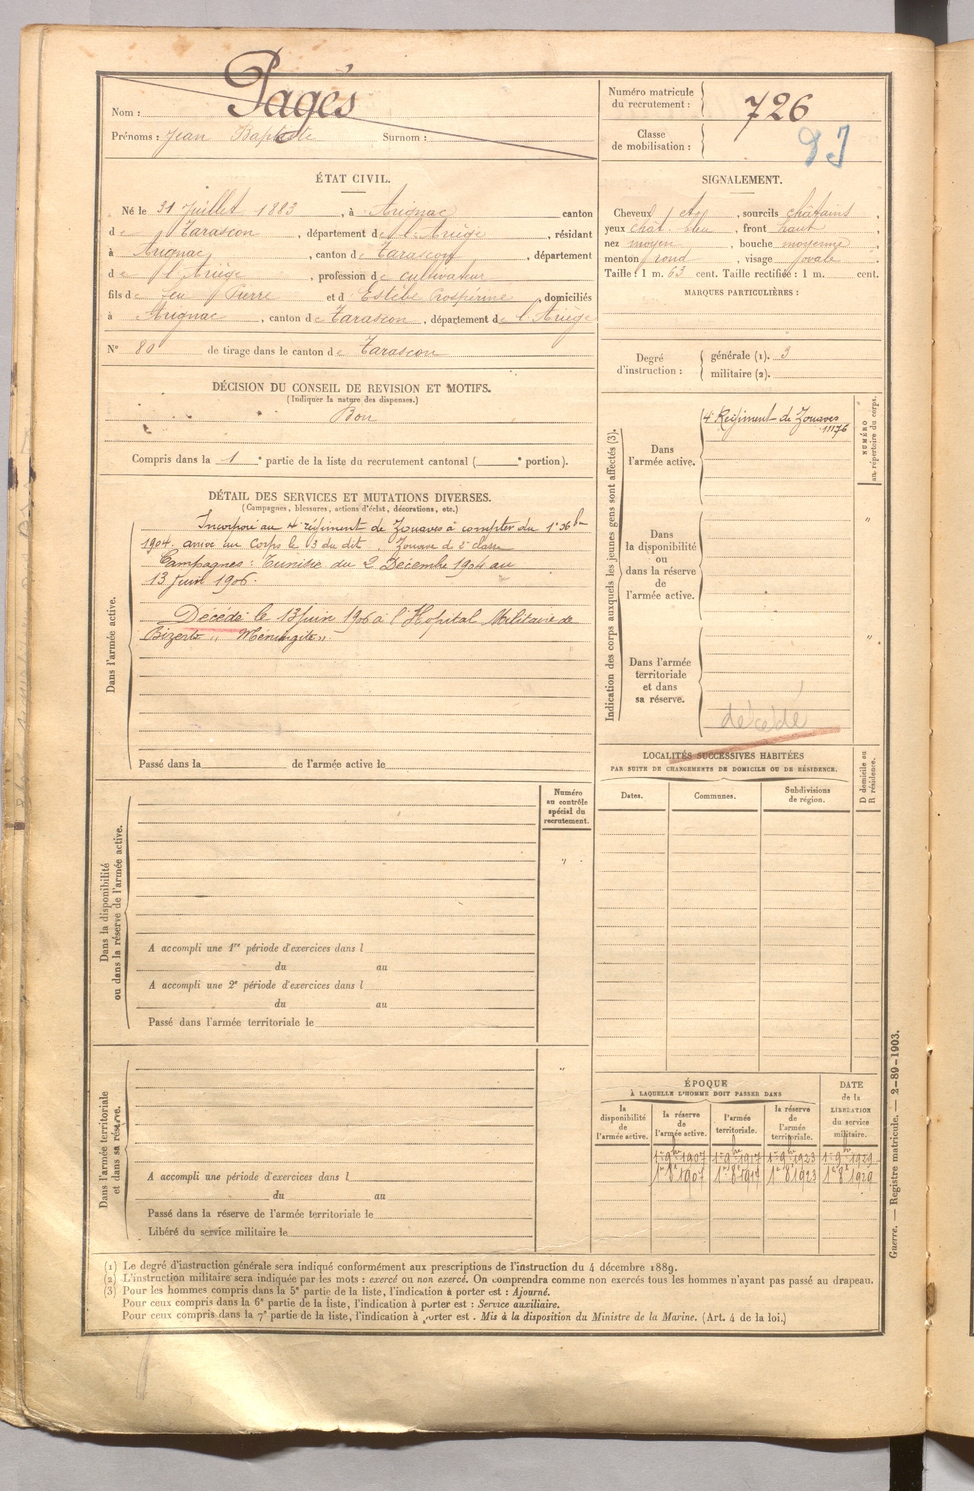 Nom : Pagès
Prénoms : Jean Baptiste Surnom :
Numéro matricule du recrutement : 726
Classe de mobilisation :
ÉTAT CIVIL.
Né le 31 Juillet 1883, à Arignac canton
de Tarascon, département de l'Ariège, résidant
à Arignac, canton de Tarascon, département
de l'Ariège, profession de cultivateur
fils de feu Pierre et d'Estèbe Prospérine, domiciliés
à Arignac, canton de Tarascon, département de l'Ariège
N° 80 de tirage dans le canton de Tarascon
SIGNALEMENT.
Cheveux, sourcils châtains,
yeux chât. bleu, front haut
nez moyen, bouche moyenne
menton rond, visage ovale
Taille : 1 m. 63 cent. Taille rectifiée : 1 m. cent.
MARQUES PARTICULIÈRES :
Degré d'instruction : générale (1). 3
militaire (2).
DÉCISION DU CONSEIL DE REVISION ET MOTIFS.
(Indiquer la nature des dispenses.)
Bon
Compris dans la 1e partie de la liste du recrutement cantonal ( e portion).
DÉTAIL DES SERVICES ET MUTATIONS DIVERSES.
(Campagnes, blessures, actions d'éclat, décorations, etc.)
Dans l'armée active.
Incorporé au 4e régiment de Zouaves à compter du 1er Xbre
1904. arrivé au corps le 3 du dit. Zouave de 2e classe
Campagnes : Tunisie du 2 Décembre 1904 au
13 Juin 1906.
Décédé le 13 Juin 1906 à l'Hopital Militaire de
Bizerte „ Méningite „.
Passé dans la de l'armée active le
Indication des corps auxquels les jeunes gens sont affectés (3).
NUMÉRO au répertoire du corps.
Dans l'armée active.
4e Régiment de Zouaves
11176
Dans la disponibilité ou dans la réserve de l'armée active.
"
Dans l'armée territoriale et dans sa réserve.
"
décédé
LOCALITÉS SUCCESSIVES HABITÉES
PAR SUITE DE CHANGEMENTS DE DOMICILE OU DE RÉSIDENCE.
D domicile ou R résidence.
Dates. Communes. Subdivisions de région.
Numéro au contrôle spécial du recrutement.
"
Dans la disponibilité ou dans la réserve de l'armée active.
A accompli une 1re période d'exercices dans l
du au
A accompli une 2e période d'exercices dans l
du au
Passé dans l'armée territoriale le
Dans l'armée territoriale et dans sa réserve.
"
A accompli une période d'exercices dans l
du au
Passé dans la réserve de l'armée territoriale le
Libéré du service militaire le
ÉPOQUE
À LAQUELLE L'HOMME DOIT PASSER DANS
DATE de la LIBÉRATION du service militaire.
la disponibilité de l'armée active. la réserve de l'armée active. l'armée territoriale. la réserve de l'armée territoriale.
1er 9bre 1907 1er 9bre 1917 1er 9bre 1923 1er 9bre 1929
1er 8 1907 1er 8 1917 1er 8 1923 1er 8 1929
Guerre. — Registre matricule. — 2-89-1903.
(1) Le degré d'instruction générale sera indiqué conformément aux prescriptions de l'instruction du 4 décembre 1889.
(2) L'instruction militaire sera indiquée par les mots : exercé ou non exercé. On comprendra comme non exercés tous les hommes n'ayant pas passé au drapeau.
(3) Pour les hommes compris dans la 5e partie de la liste, l'indication à porter est : Ajourné.
Pour ceux compris dans la 6e partie de la liste, l'indication à porter est : Service auxiliaire.
Pour ceux compris dans la 7e partie de la liste, l'indication à porter est. Mis à la disposition du Ministre de la Marine. (Art. 4 de la loi.)